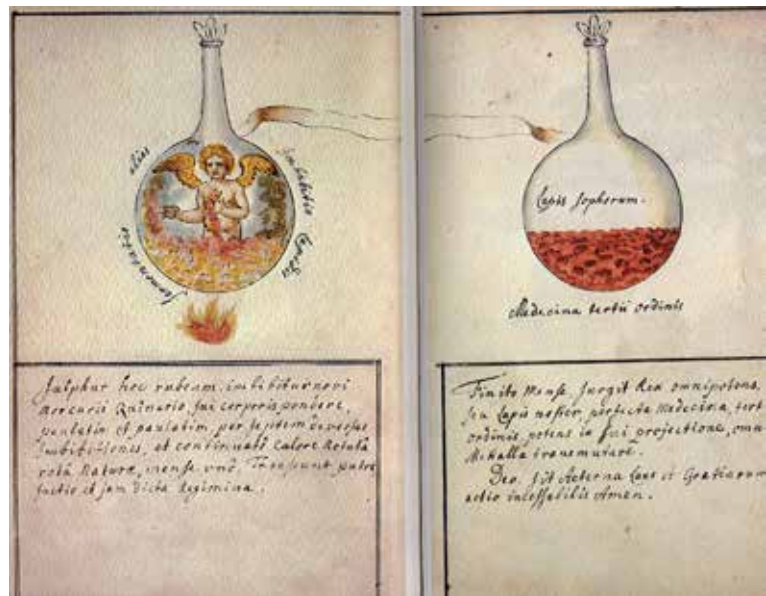 alias
fermentatio
Imbibitio Lapidis
Sulphur hoc rubeum, imbibitur novi
Mercurii Quinario, sui corporis pondere,
paulatim et paulatim, per septem diversas
Imbibitiones, et continuato Calore Rotulâ
rotâ Naturæ, mense unô. Transeunt putre
factio et jam dicta Regimina.
Lapis Sophorum.
Medecina tertii ordinis
Finito Mense, surgit Rex omnipotens,
seu Lapis noster, perfecta Medecina, tert
ordinis, potens in sui projectione, omn
Metalla transmutare.
Deo sit Aeterna Laus et Gratiarum
actio ineffabilis Amen.